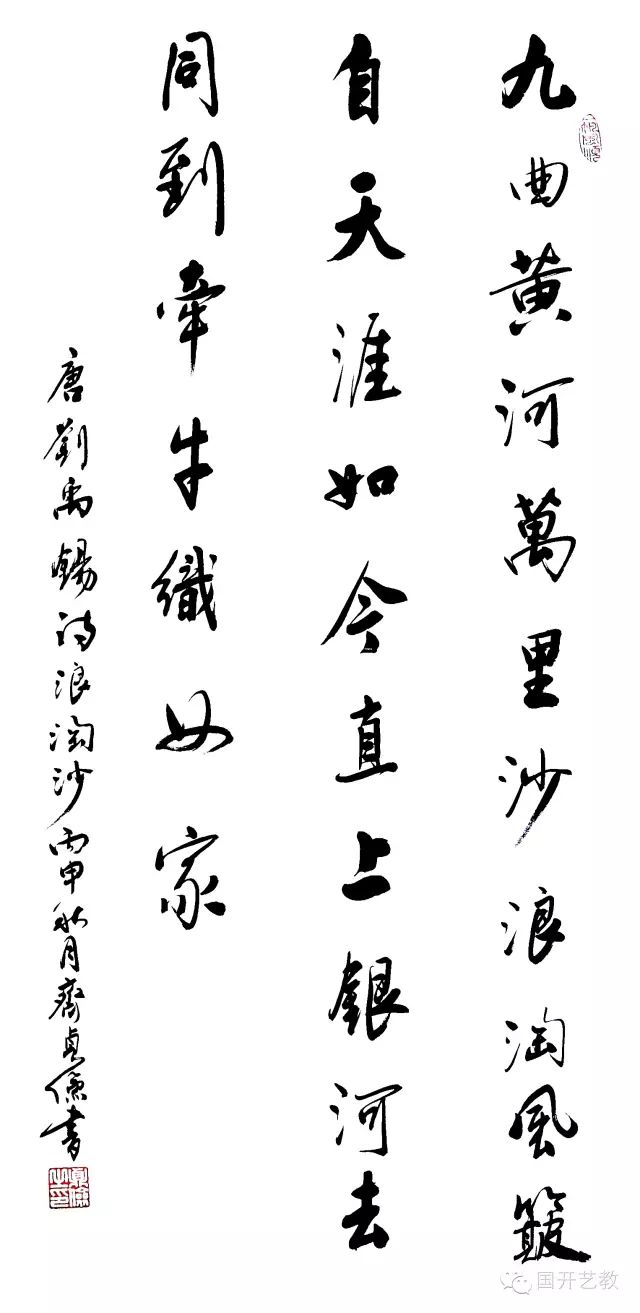 九曲黄河萬里沙浪淘風簸
自天涯如今直上銀河去
同到牽牛織女家
唐劉禹錫詩浪淘沙丙申秋月齊貞儉書
国开艺教